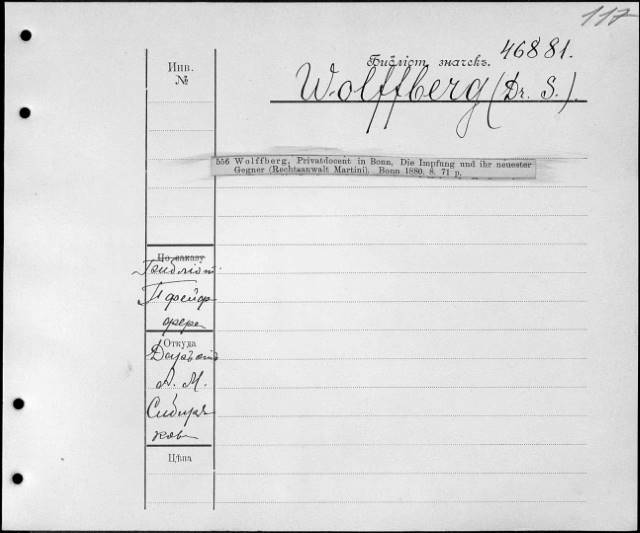 117
Инв.
№
Библіот. значекъ. 46881.
Wolffberg (Dr. S.).
556 Wolffberg, Privatdocent in Bonn, Die Impfung und ihr neuester
Gegner (Rechtsanwalt Martini). Bonn 1880. 8. 71 p.
По заказу
Библіот.
Пфейф
фера
Откуда
Даръ отъ
А. М.
Сибиря
кова
Цѣна